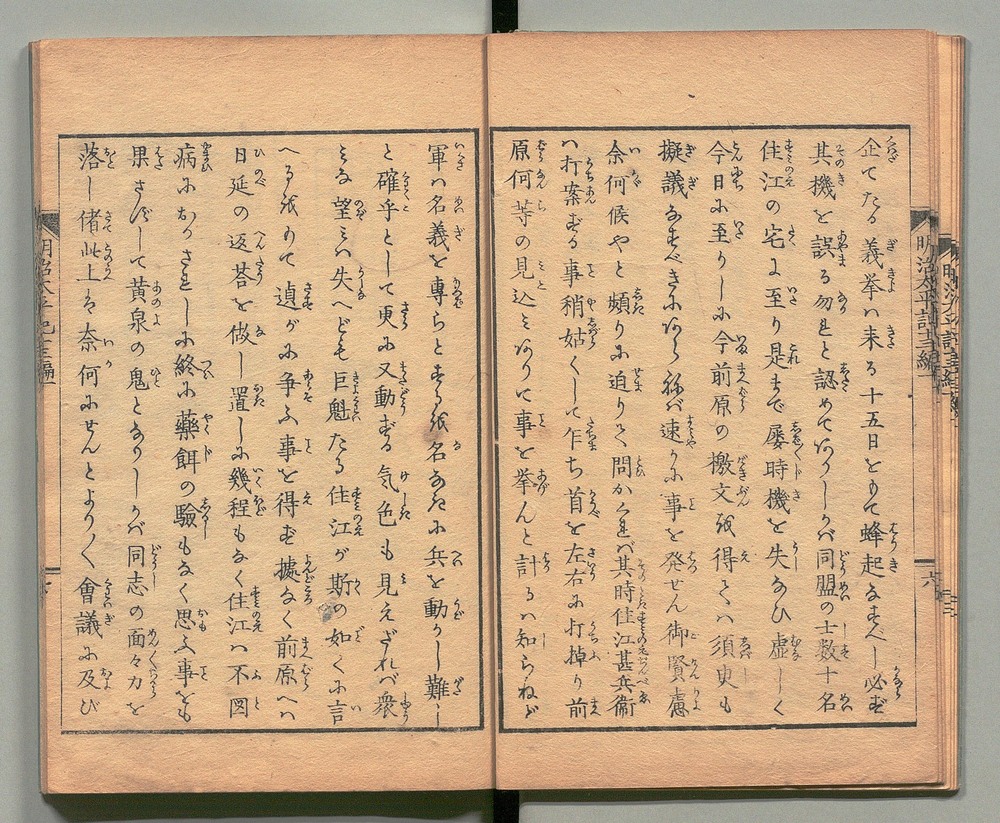 企てたる義挙ハ来る十五日をもて蜂起なすべし必ず
其機を誤る勿れと認めてありしかバ同盟の士数十名
住江の宅に至り是まで屡時機を失なひ虚しく
今日に至りしに今前原の檄文を得てハ須臾も
擬議なすべきにあらねバ速かに事を発せん御賢慮
奈何候やと頻りに迫りて問かくれバ其時住江甚兵衛
ハ打案ずる事稍姑くして乍ち首を左右に打掉り前
原何等の見込ミありて事を挙んと計るハ知らねど
軍ハ名義を専らとする を名なきに兵を動かし難し
と確乎として更に又動ずる気色も見えざれバ衆
ミな望ミハ失へども巨魁たる住江が斯の如くに言
へるをもて遉がに争ふ事を得ず拠なく前原へハ
日延の返荅を做し置しに幾程もなく住江ハ不図
病におかされしに終に藥餌の驗もなく思ふ事をも
果さずして黄泉の鬼となりしかバ同志の面々力を
落し偖此上は奈何にせんとよりく會議に及び
明治太平記十三編
明治太平記十三編一
六